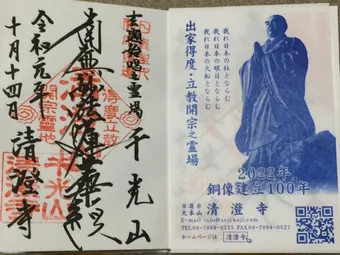 立教開宗之霊場 千光山
南無妙法蓮華経
令和元年
十月十四日
清澄寺
我れ日本の柱とならむ
我れ日本の眼目とならむ
我れ日本の大船とならむ
出家得度・立教開宗之霊場
2022年
銅像建立100年
日蓮宗
大本山 清澄寺
TEL04-7094-0525 FAX04-7094-0527
ホームページは 清澄寺